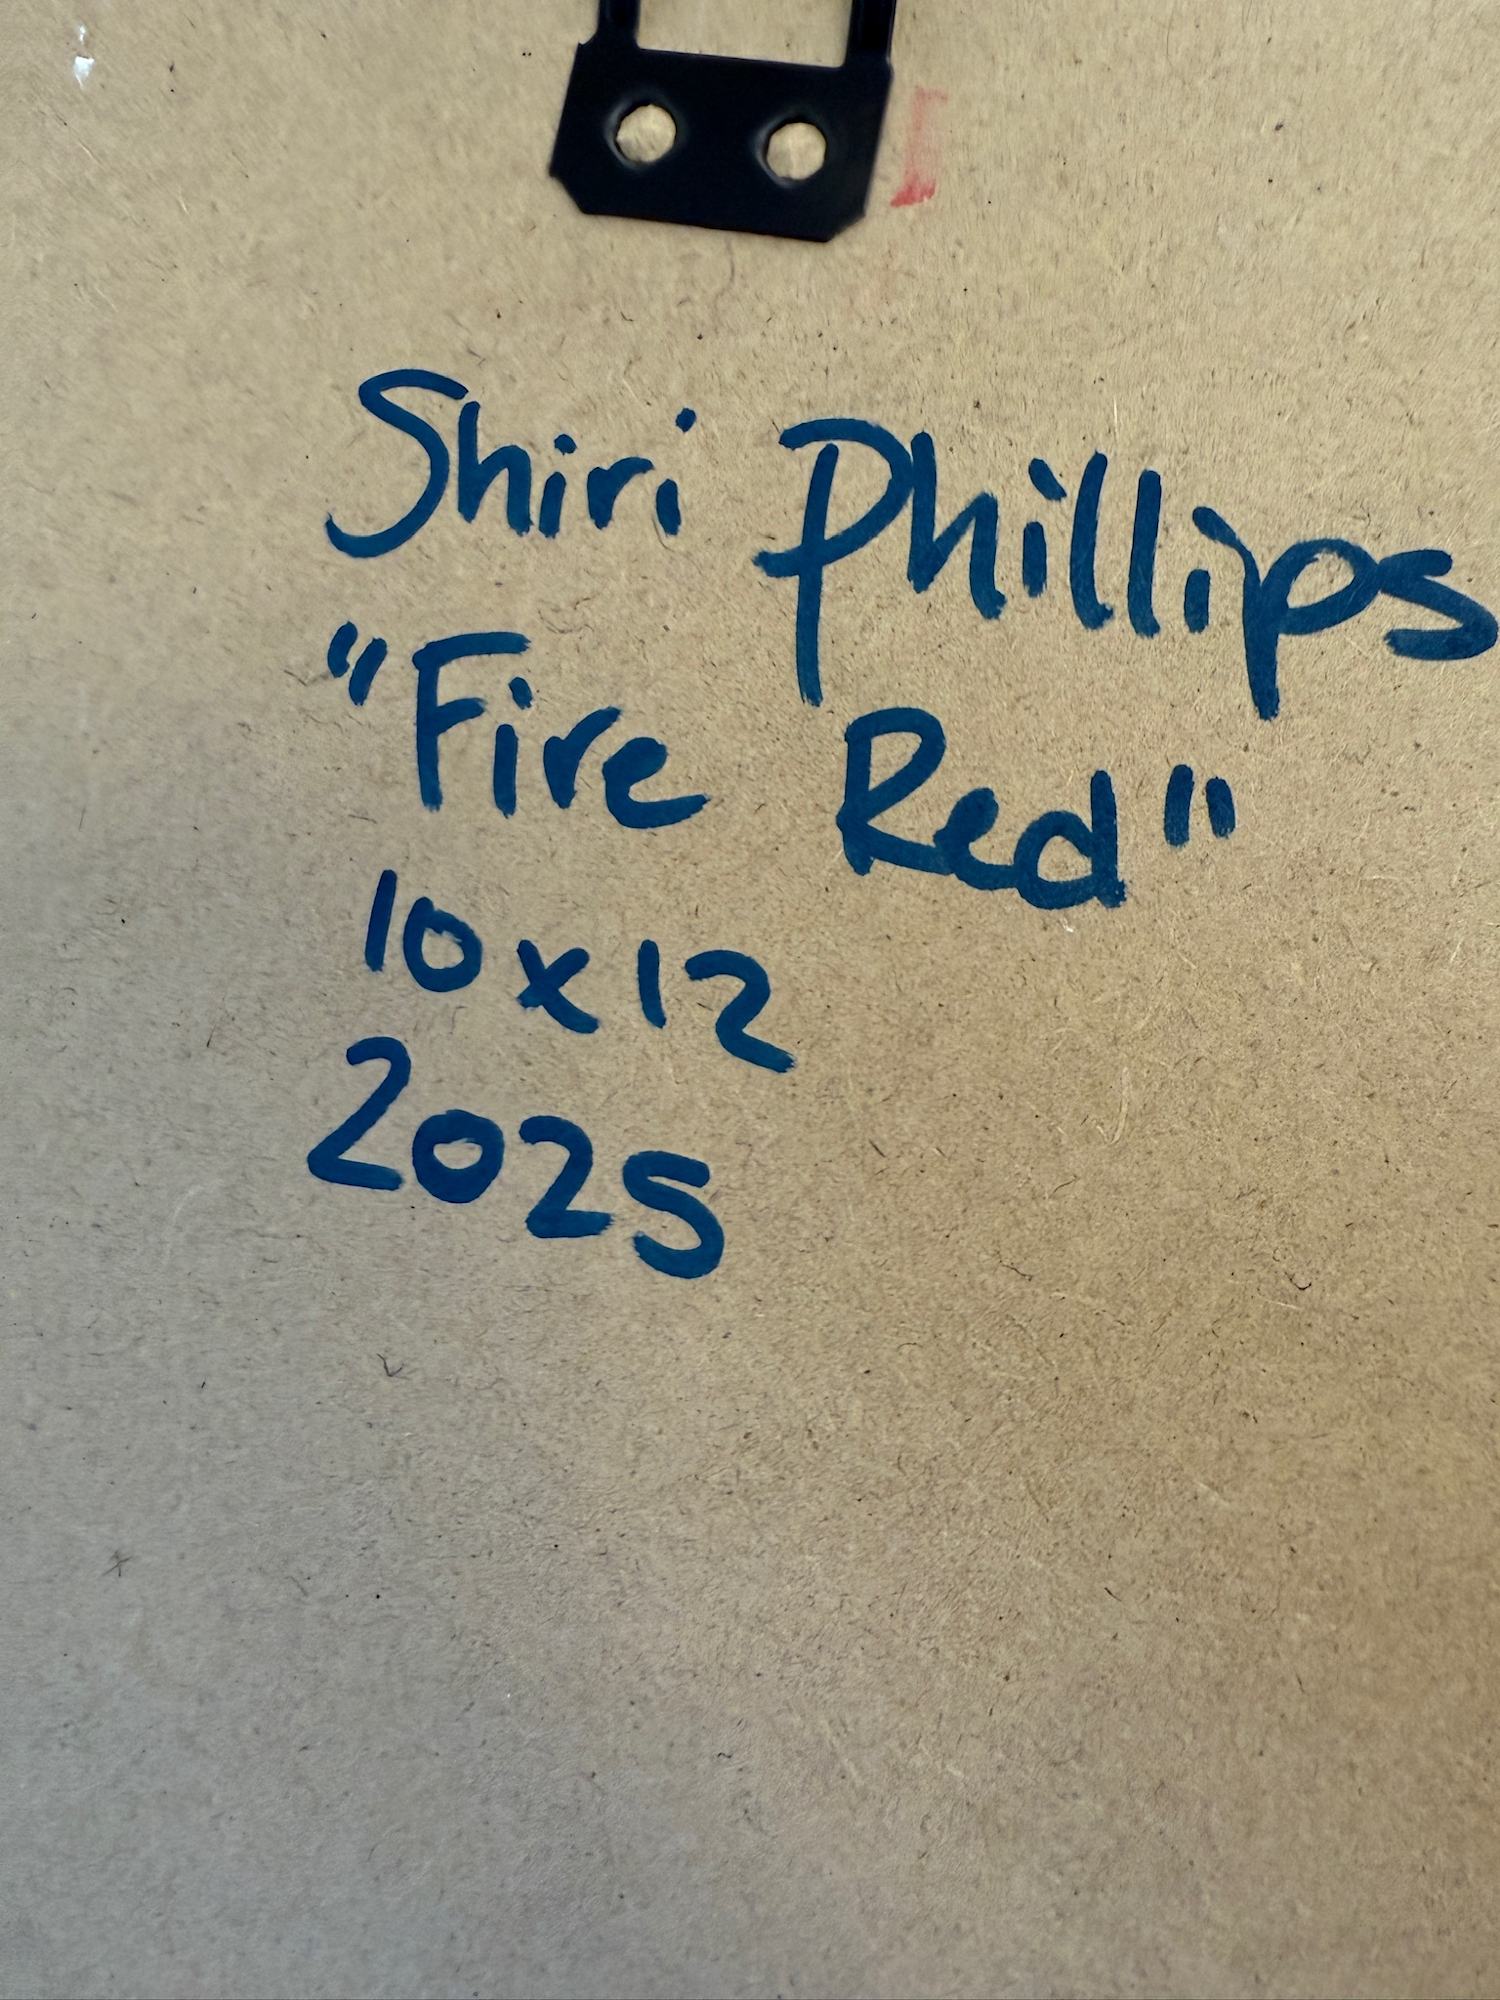 Shiri Phillips
"Fire Red"
10 x 12
2025